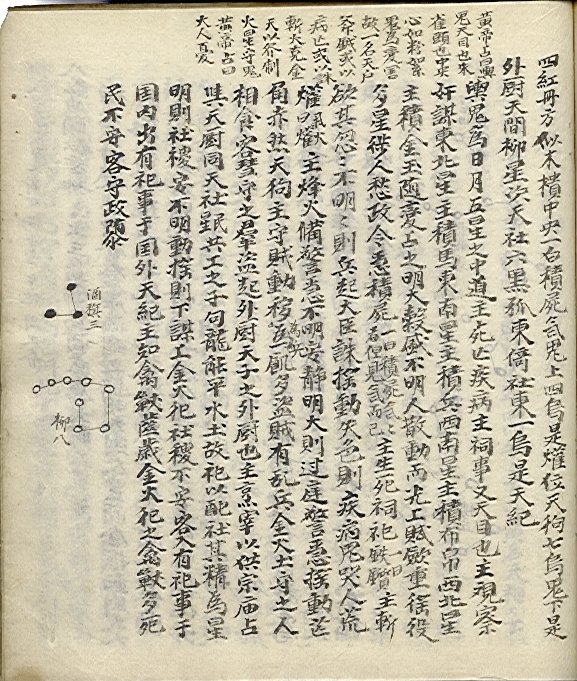 四紅冊方似木櫃中央一白積屍氣鬼上四烏是爟位天狗七烏鬼下是
外厨天間柳星次天社六黑弧東倚社東一烏是天紀
輿鬼為日月五星之中道主死亡疾病主祠事又天目也主視察
奸謀東北星主積馬東南星主積兵西南星主積布帛西北星
主積金玉隨變占之明大穀風不明人散動而光上賦歛重徭役
多星徙人愁政令悉積屍一曰積屍氣主生死祠祀一曰鈇鑕主斬
欲其忽忽不明明則兵起大臣誅搖動失色則疾病鬼哭人荒
爟主烽火備警急不明安静明大則过庭警急搖動芒
角亦然天狗主守賊動移為飢多盗賊有乱兵金火土守之人
相食客彗守之羣盗起外厨天子之外厨也主烹宰以供宗庙占
與天厨同天社星共工之子句龍能平水土故祀以配社其精為星
明則社稷安不明動搖則下謀上金火犯社稷不安客入有祀事于
国内出有祀事于国外天紀主知禽獸齒歲金火犯之禽獸多死
民不安客守政隳
黄帝占曰輿
鬼天目也朱
雀頭也中央
心如粉絮
一名天尸
病亡或以誅
斬火克金
天以祭制
火星守鬼
黄帝占曰
大人憂
酒旗三
柳八